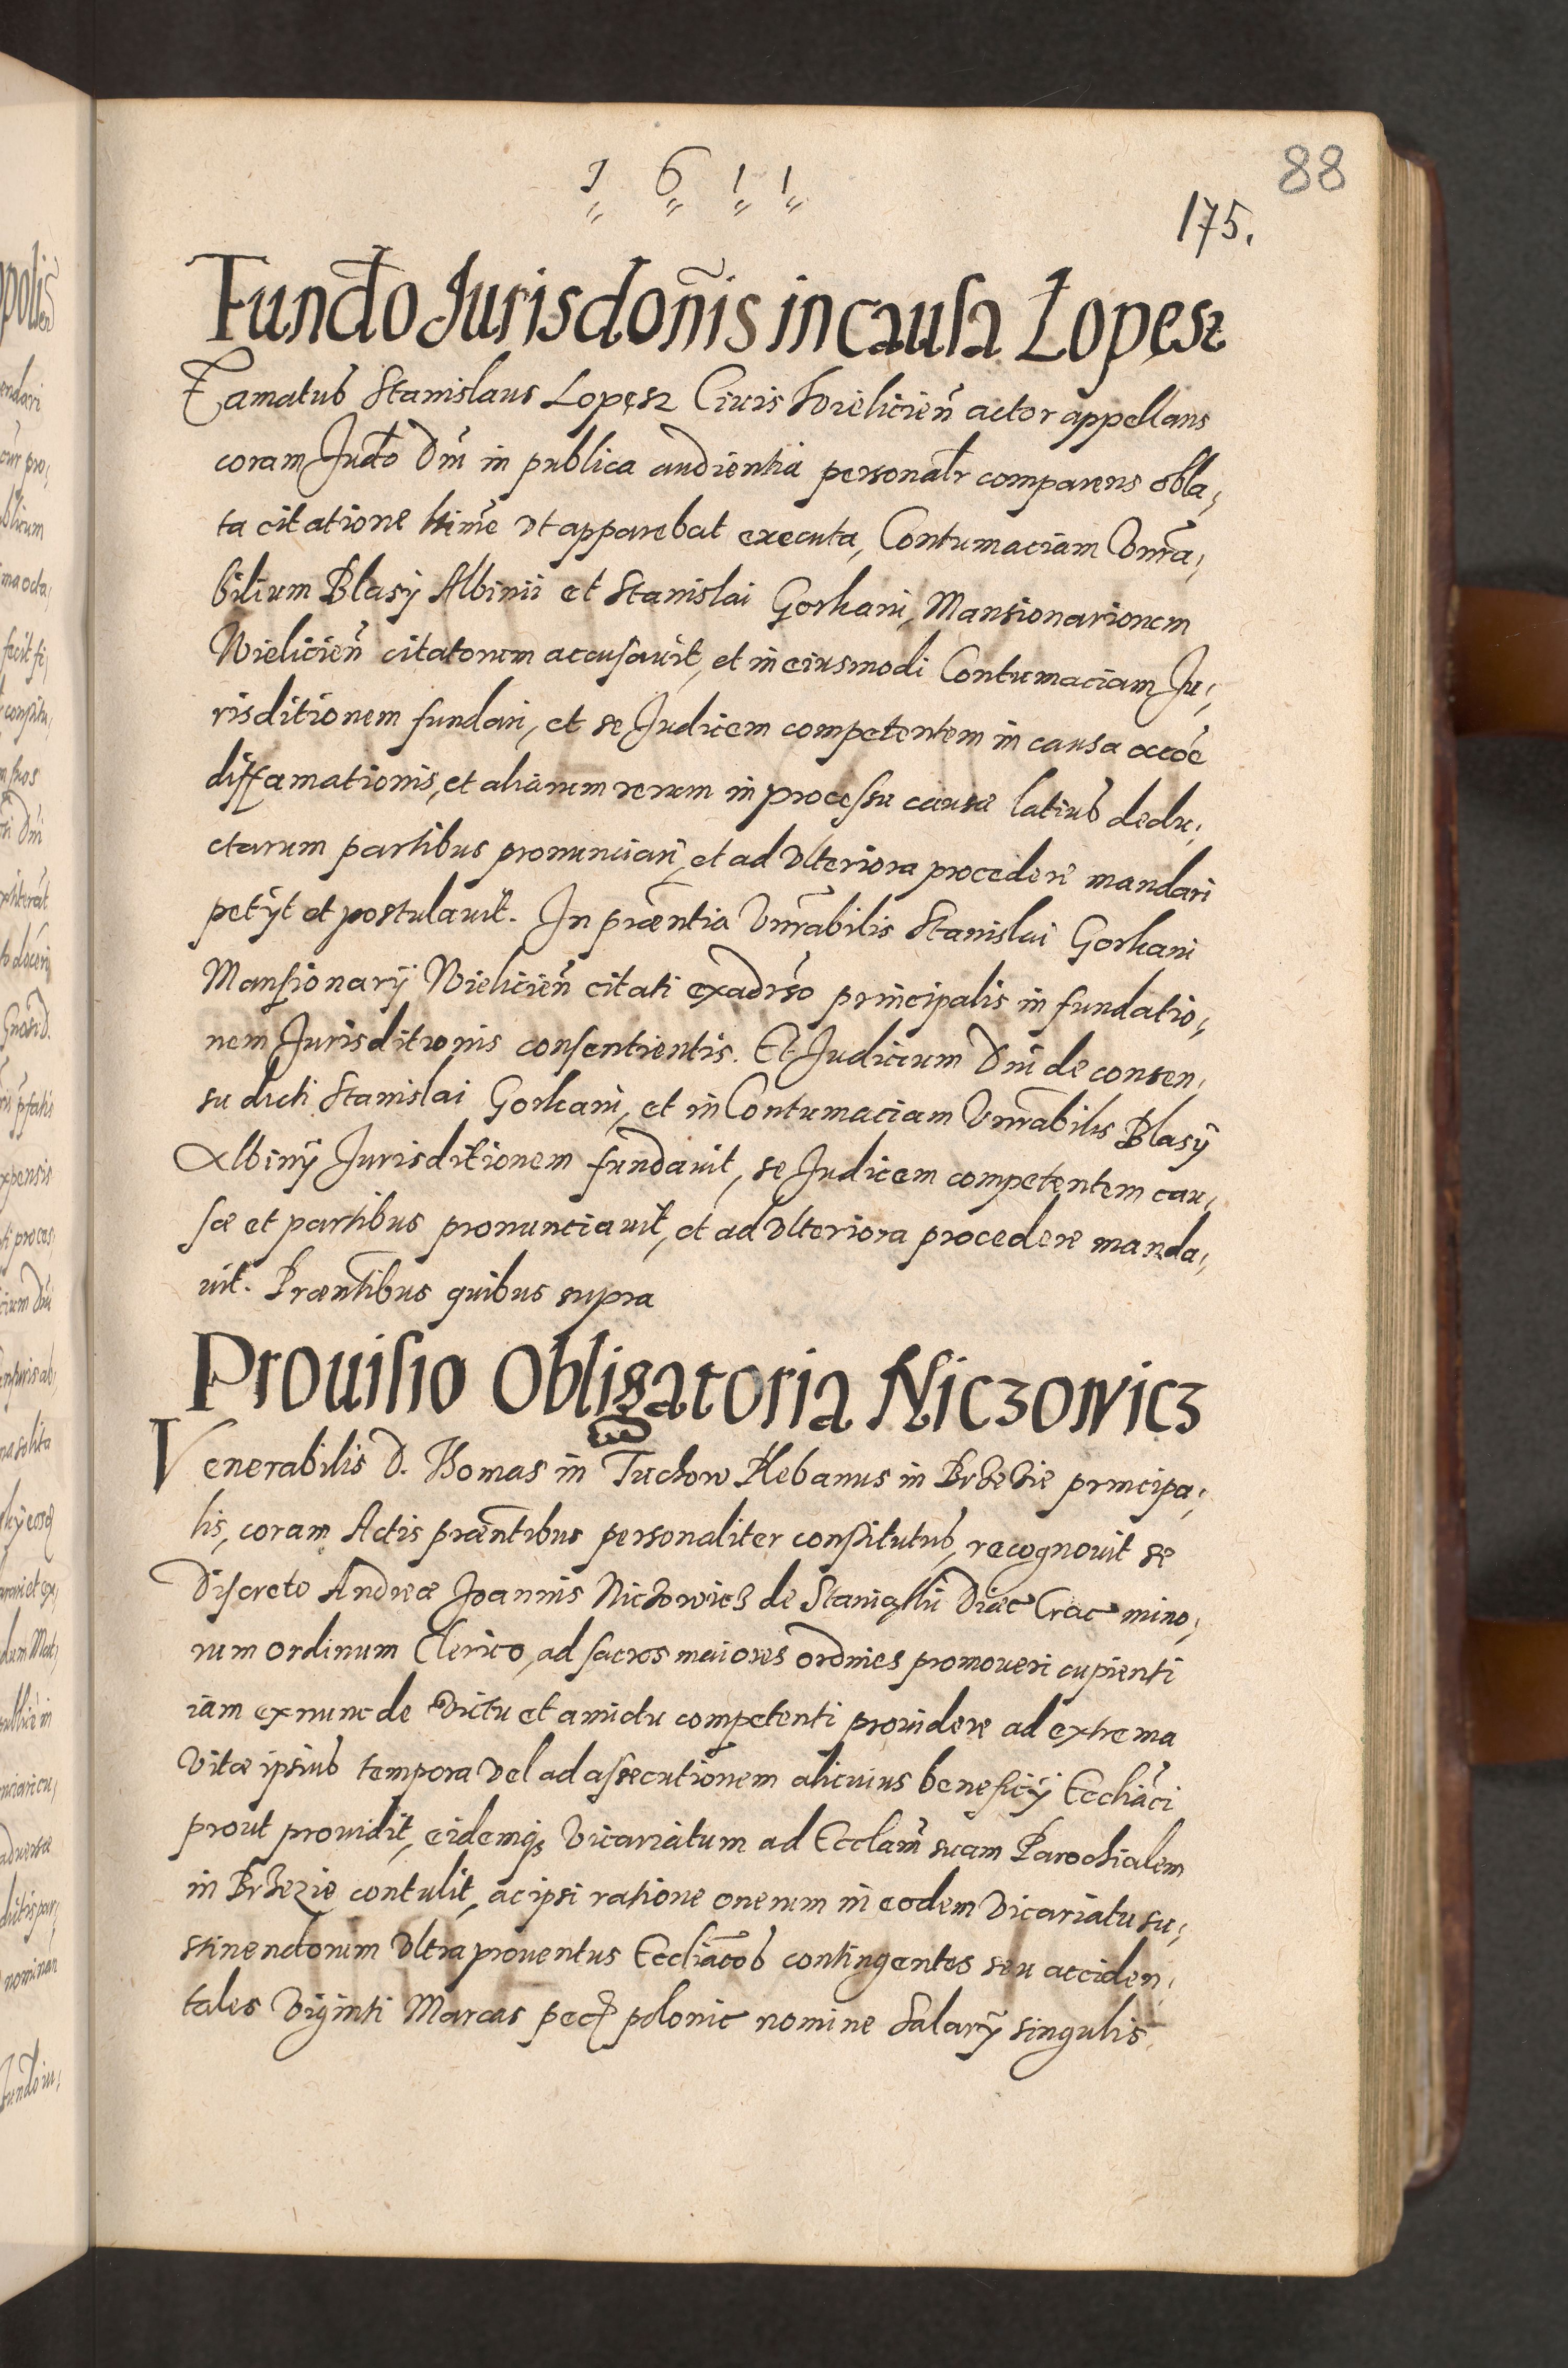 1 6 1 1
88
175.
Fundõ Jurisdonĩs in causa Lopesz
Famatus Stanislaus Lopęsz Ciuis Wielicien̄ actor appellans
coram Judõ Dn̄i in publica audientia personalr̃ comparens obla,
ta citatione ltimẽ vt apparebat executa, Contumaciam Vnr̃a,
bilium Blasÿ Albinii et Stanislai Gorkani, Mansionariorum
Wielicien̄ citatorum accusauit, et in eiusmodi Contumaciam Ju,
risditionem fundari, et se Judicem competentem in causa accõe
diffamationis, et aliarum rerum in processu causæ latius dedu,
ctarum partibus pronunciari, et ad vlteriora procedere mandari
petÿt et postulauit. In præntia Vnr̃abilis Stanislai Gorkani
Mansionarÿ Wielicien̄ citati exadrso principalis in fundatio,
nem Jurisditionis consentientis. Et Judicium Dn̄i de consen,
su dicti Stanislai Gorkani, et in Contumaciam Vnr̃abilis Blasÿ
Albinÿ Jurisditionem fundauit, se Judicem competentem cau,
sæ et partibus pronunciauit, et ad vlteriora procedere manda,
uit. Præntibus quibus supra
Prouisio Obligatoria Niczowicz
Venerabilis D. Thomas in Tuchow Plebanus in Brzezie principa,
lis, coram Actis præntibus personaliter constitutus, recognouit se
Discreto Andreæ Joannis Niczowicz de Diæc Crac mino,
rum ordinum Clerico, ad sacros maiores ordines promoueri cupienti
iam ex nunc de victu et amictu competenti prouidere ad extrema
vitæ ipsius tempora vel ad assecutionem alicuius beneficÿ Eccliãci
prout prouidit, eidemq₃ vicariatum ad Ecclam̃ suam Parochialem
in Brzezie contulit, ac ipsi ratione onerum in eodem vicariatu su,
stinendorum vltra prouentus Eccliãcos contingentes seu acciden,
tales viginti Marcas pec polonic nomine Salarÿ singulis